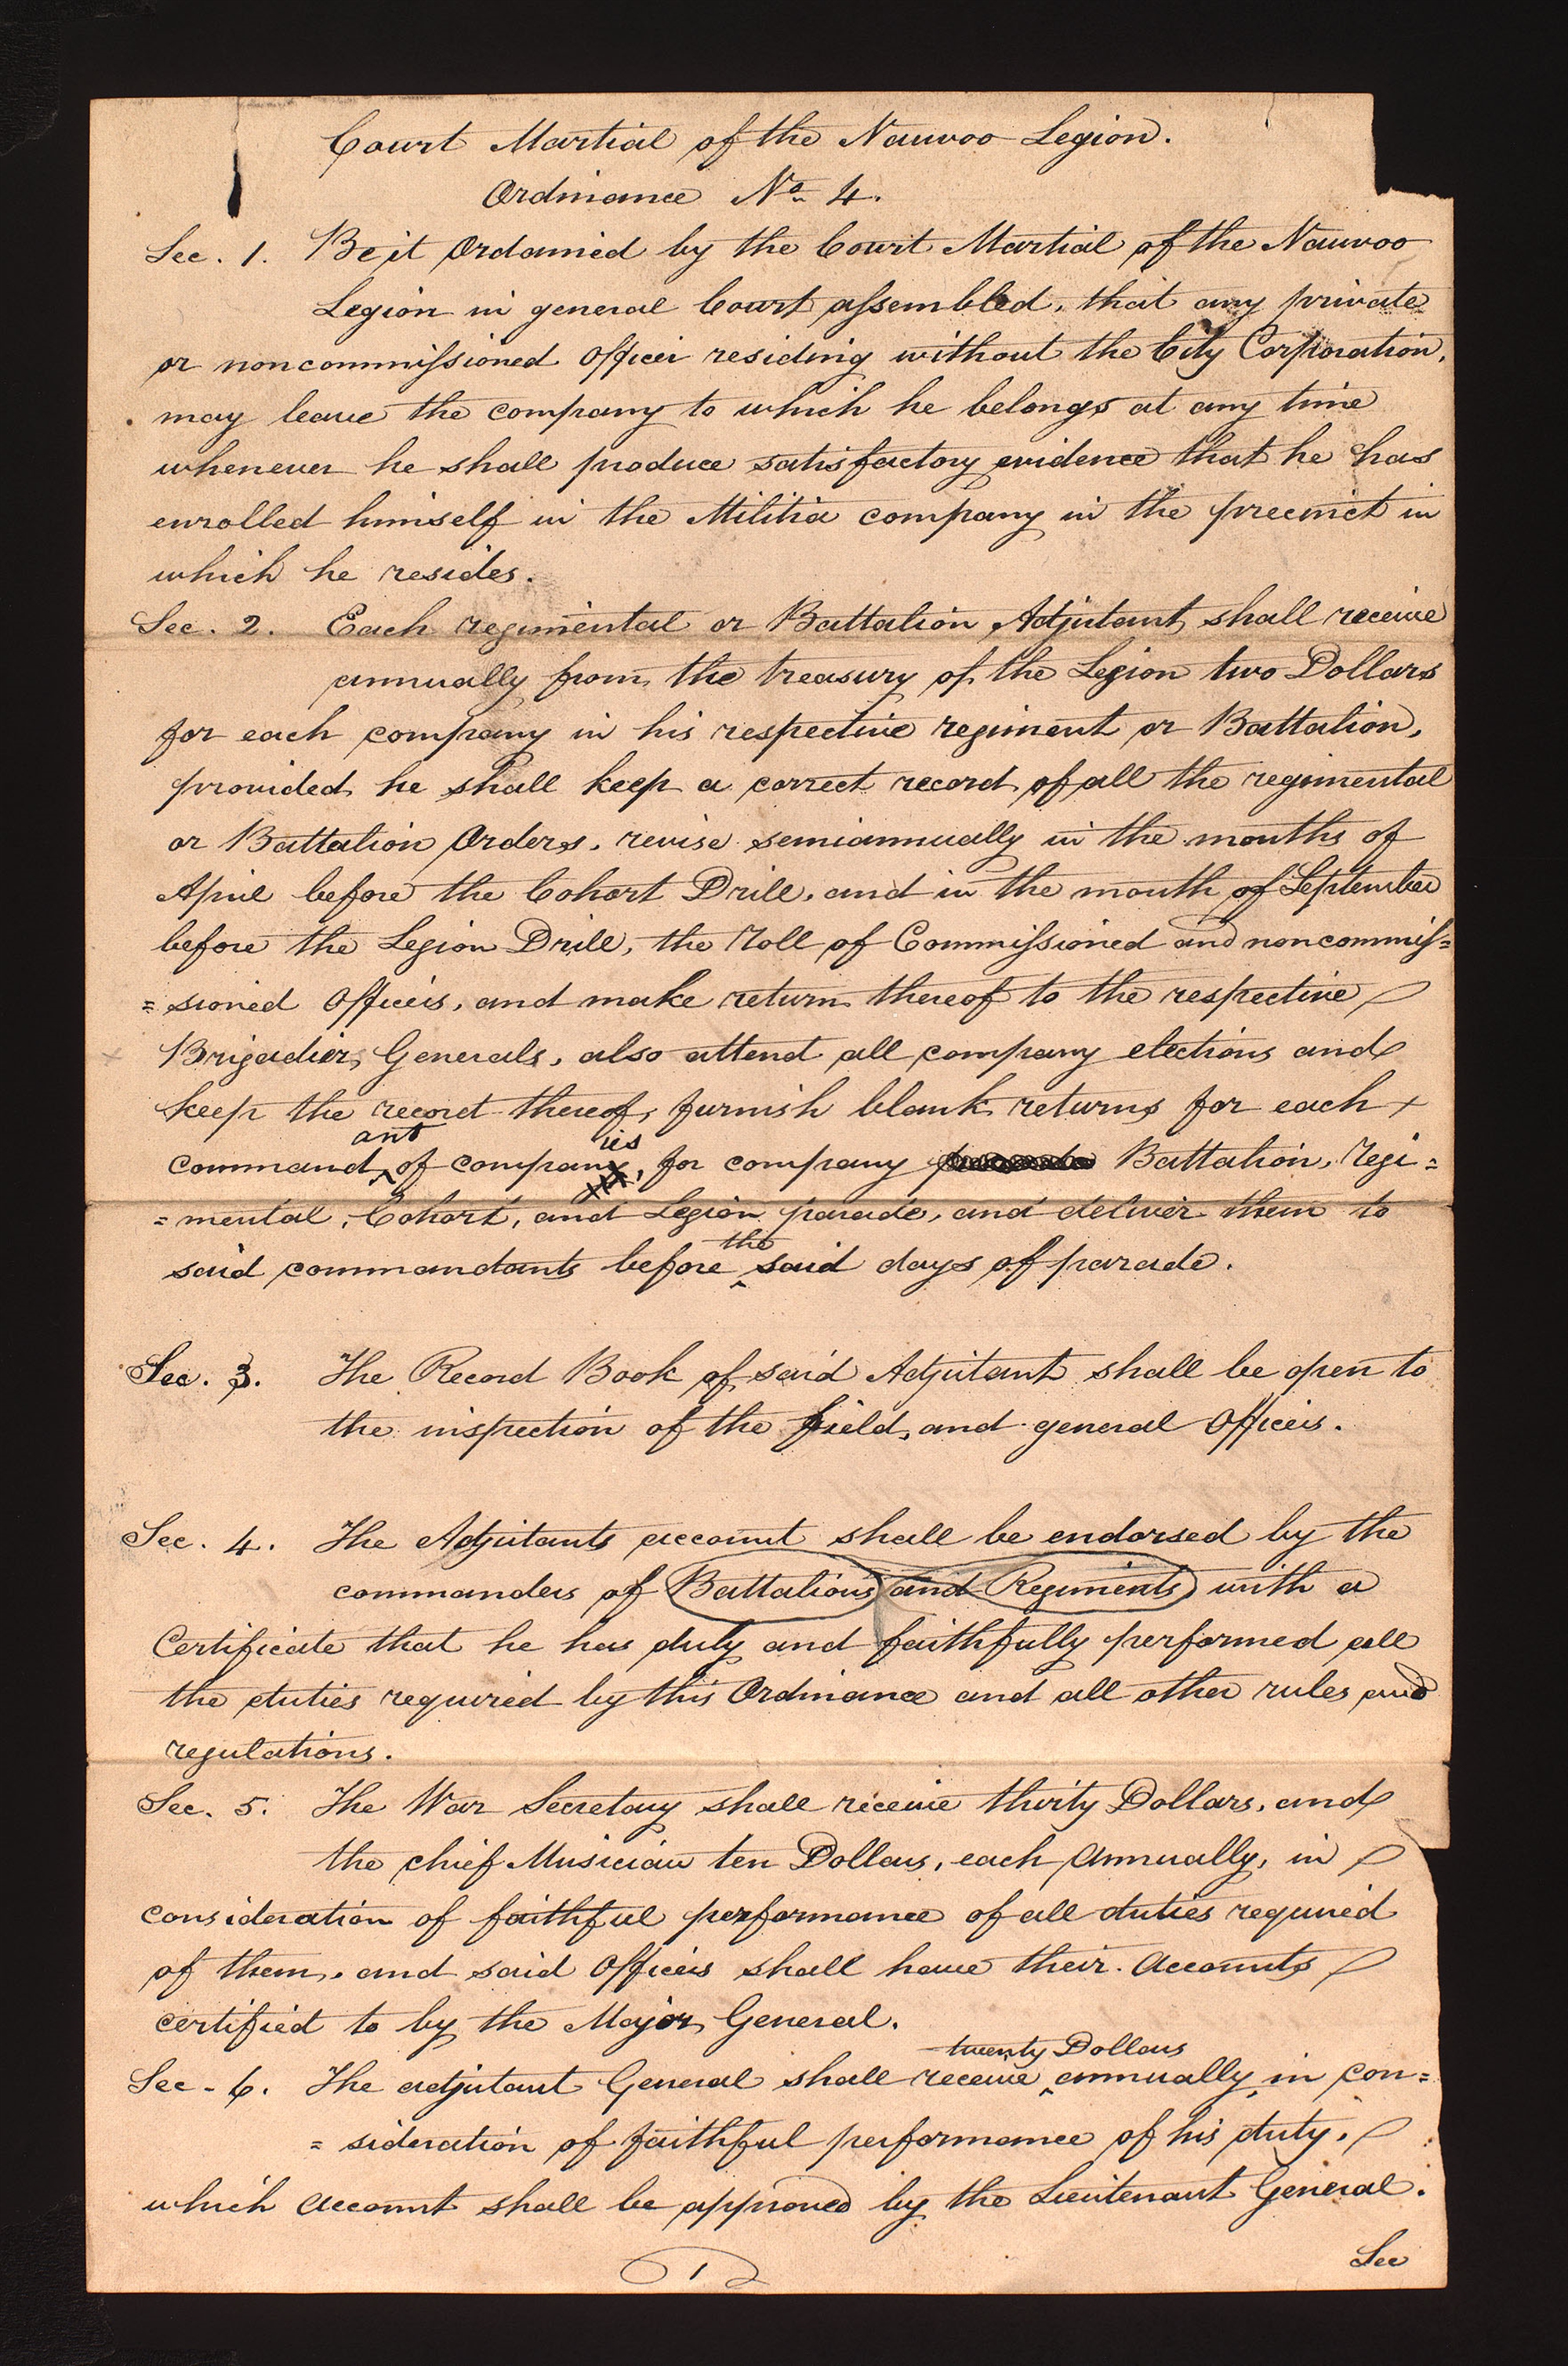 Court Martial of the Nauvoo Legion.
Ordinance No 4.
Sec. 1. Be it Ordained by the Court Martial of the Nauvoo
Legion in general Court assembled, that any private
or noncommissioned Officer residing without the City Corporation,
may leave the company to which he belongs at any time
whenever he shall produce satisfactory evidence that he has
enrolled himself in the Militia company in the precinct in
which he resides.
Sec. 2. Each regimental or Battalion Adjutant shall receive
annually from the treasury of the Legion two Dollars
for each company in his respective regiment or Battalion,
provided he shall keep a correct record of all the regimental
or Battalion Orders, revise semiannually in the months of
April before the Cohort Drill, and in the month of September
before the Legion Drill, the roll of Commissioned and noncommis=
=sioned Officers, and make return thereof to the respective
Brigadier Generals, also attend all company elections and
keep the record thereof, furnish blank returns for each
ant ies
command of company, for company Battalion, regi=
=mental, Cohort, and Legion parade, and deliver them to
the
said commandants before said days of parade.
Sec. 3. The Record Book of said Adjutant shall be open to
the inspection of the field, and general Officers.
Sec. 4. The Adjutants account shall be endorsed by the
commanders of Battalions and Regiments with a
Certificate that he has duly and faithfully performed all
the duties required by this Ordinance and all other rules and
regulations.
Sec. 5. The War Secretary shall receive thirty Dollars, and
the chief Musician ten Dollars, each annually, in
consideration of faithful performance of all duties required
of them, and said Officers shall have their accounts
certified to by the Major General.
twenty Dollars
Sec. 6. The adjutant General shall receive annually, in con=
=sideration of faithful performance of his duty,
which account shall be approved by the Lieutenant General.
Sec
1